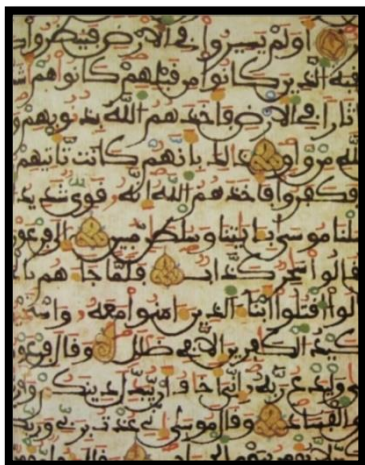 اولم يسيروا في الارض فينظروا
قبة الذين كانوا من قبلهم كانوا هم اش
ثارا في الارض فاخذهم الله بذنوبهم و
لله من واق ذلك بانهم كانت تاتيهم
فكفروا فاخذهم الله انه قوي شديد
سلنا موسى بايتنا وسلطن مبين الى فرعو
فقالوا سحر كذاب فلما جاهم با
لوا اقتلوا ابنا الذين امنوا معه واست
كيد الكفرين الا في ضلل وقال فرعو
ى وليدع ربه اني اخاف ان يبدل دينك
الفساد وقال موسى اني عذت بربي ورب